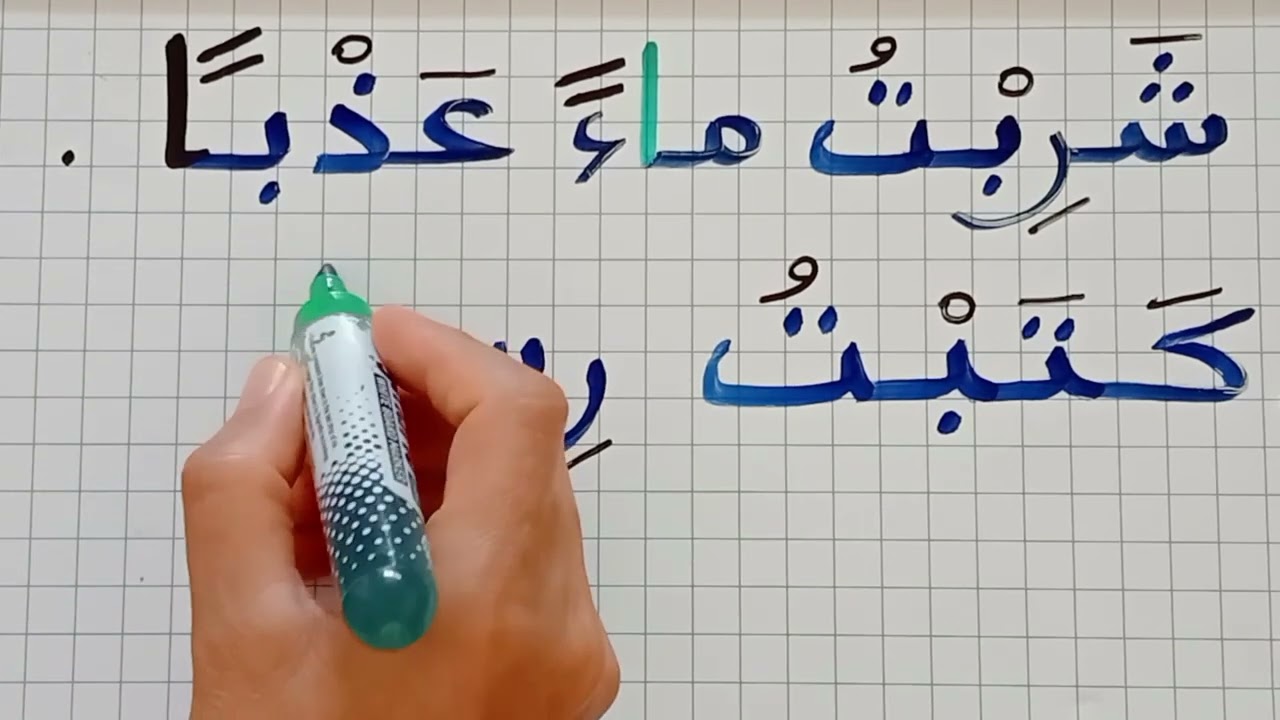 شَرِبْتُ ماءً عَذْبًا .
كَتَبْتُ